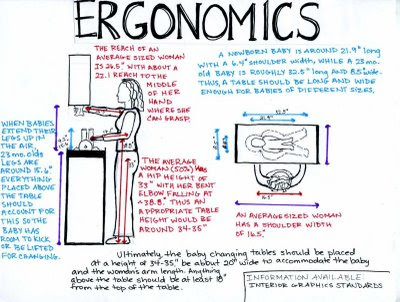 ERGONOMICS
THE REACH OF AN
AVERAGE SIZED WOMAN
IS 26.5" WITH ABOUT A
22.1 REACH TO THE
MIDDLE
OF HER
HAND
WHERE SHE
CAN GRASP.
A NEWBORN BABY IS AROUND 21.9" long
WITH A 6.4" SHOULDER WIDTH, WHILE A 23 mo.
old BABY IS ROUGHLY 32.5" long AND 8.5" wide.
THUS, A TABLE SHOULD BE LONG AND WIDE
ENOUGH FOR BABIES OF DIFFERENT SIZES.
WHEN BABIES
EXTEND THEIR
LEGS UP IN
THE AIR,
23 mo. olds
LEGS ARE
AROUND 15.6"
EVERYTHING
PLACED ABOVE
THE TABLE
SHOULD
ACCOUNT FOR
THIS SO THE
BABY HAS
ROOM TO KICK
OR BE LIFTED
FOR CHANGING.
THE AVERAGE
WOMAN (50%) HAS
A HIP HEIGHT OF
33" WITH HER BENT
ELBOW FALLING AT
≈38.8." THUS AN
APPROPRIATE TABLE
HEIGHT WOULD BE
AROUND 34-35"
32.5"
16.5"
AN AVERAGE SIZED WOMAN
HAS A SHOULDER WIDTH
OF 16.5."
Ultimately, the baby changing tables should be placed
at a height of 34-35" be about 20" wide to accommodate the baby
and the womans arm length. Anything
above the table should be at least 18"
from the top of the table.
INFORMATION AVAILABLE
INTERIOR GRAPHICS STANDARDS